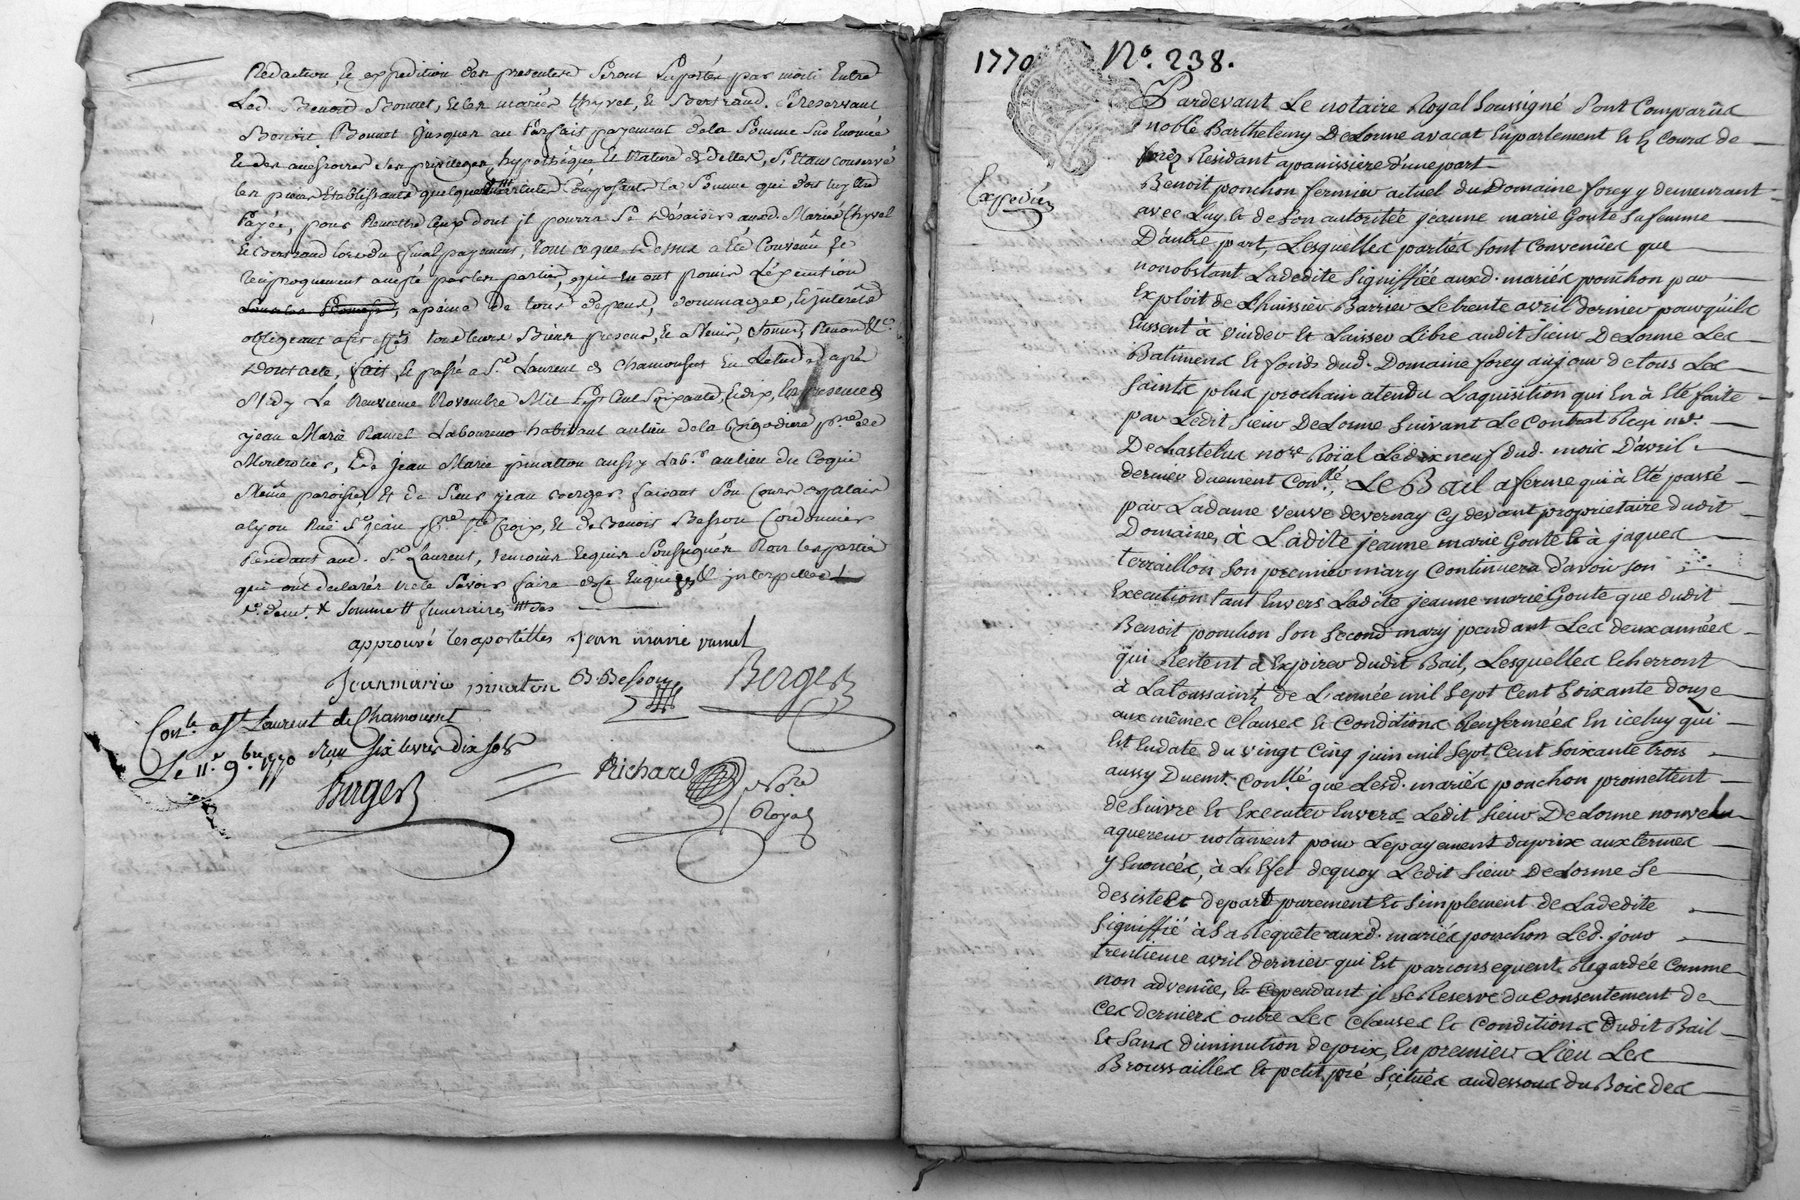 Redaction, & expedition des presentes seront suportés par moitié entre
Led. Benoit Bonnet, & les mariés thyvel, & Bertrand. Se Reservant
Benoit Bonnet jusques au parfait payement de la somme sus enoncée
les privileges, hypothéque
les pieces etablissants la somme qui doit luy etre
Payée, pour Remettre ceux dont jl pourra se désaisir auxd. Mariés thyvel
& Bertrand lors du final payement, tout ce que dessus a été convenû, &
reciproquement accepté par les parties, qui en ont promis l'éxecution
apeine de tous depens, dommages, & interêts
obligeants a ces effets tous leurs Biens presens, & a venir, Renon &c.
Dont acte, fait, & passé a St. Laurent de Chamousset en Letude apres
Midy Le Neuvieme Novembre Mil sept Cent soixante, & dix, En presence de
jean Marie Ramel Laboureur habitant au lieu de la
Montrotier, & de jean Marie pinatton aussy Lab.r au lieu du Coquie
Même paroisse, & de sieur jean Berger faisant son cours de palais
a lyon Rüe St. jean St.e Croix, & de Benoit Besson Cordonnier
Residant aud. St. Laurent, temoins Requis soussignés Non les parties
qui ont declarés ne le savoir faire de ce Enquises & interpellées
somme funeraires des
approuvé les apostilles Jean marie ramel
Jean marie pinaton B. Besson Berger
Con.lé a St. Laurent de Chamousset
Le 11.e 9.bre 1770 Reçu six livres dix sols
Berger
Richard Not.re
Royal
1770 N.o 238.
Expediée
Pardevant Le notaire Royal soussigné sont Comparûs
noble Barthelemy DeLorme avocat En parlement Et Es Cours de
forêz Residant apanissiere d'une part
Benoit ponchon fermier actuel du Domaine forey y demeurant
avec Luy & de son autoritée jeanne marie Goute sa femme
D'autre part, Lesquelles parties sont convenües que
nonobstant Ladedite signiffiée auxd. mariés ponchon par
Exploit de L'huissier Barrier Le trente avril dernier pour qu'ils
Eussent à vuider Et Laisser Libre audit sieur DeLorme Les
Batimens Et fonds dud. Domaine forey au jour de tous Les
saints plus prochain atendu L'aquisition qui En à Eté faite
par Ledit sieur DeLorme suivant Le Contrat Reçu m.e
Dechastelus no.re Roïal Le dix neuf dud. mois D'avril
dernier duement Con.llé, Le Bail a ferme qui à Eté passé
par La dame veuve devernay Cy devant proprietaire dudit
Domaine, à Ladite jeanne marie Goute Et à jaques
terraillon son premier mary Continuera d'avoir son
Execution tant Envers Ladite jeanne marie Goute que dudit
Benoit ponchon son second mary pendant Les deux années
qui Restent à Expirer dudit Bail, Lesquelles Echerront
à La toussaint de L'année mil sept Cent soixante douze
aux mêmes clauses Et Conditions Renfermées En iceluy qui
Est En date du vingt Cinq juin mil sept Cent soixante trois
aussy Duem.t Con.llé que Lesd. mariés ponchon promettent
de suivre Et Executer Envers Ledit sieur DeLorme nouvel
aquereur notament pour Le payement du prix aux termes
y Enoncés, à L'Efet de quoy Ledit sieur DeLorme se
desiste Et depart purement Et simplement de Ladedite
signiffié à sa Requête auxd. mariés ponchon Led. jour
trentieme avril dernier qui Est par consequent Regardée Comme
non advenûe, Et Cependant jl se Reserve du consentement de
ces derniers outre Les Clauses Et Conditions dudit Bail
Et sans diminution de prix, En premier Lieu Les
Broussailles Et petit pré scitués audessous du Bois des